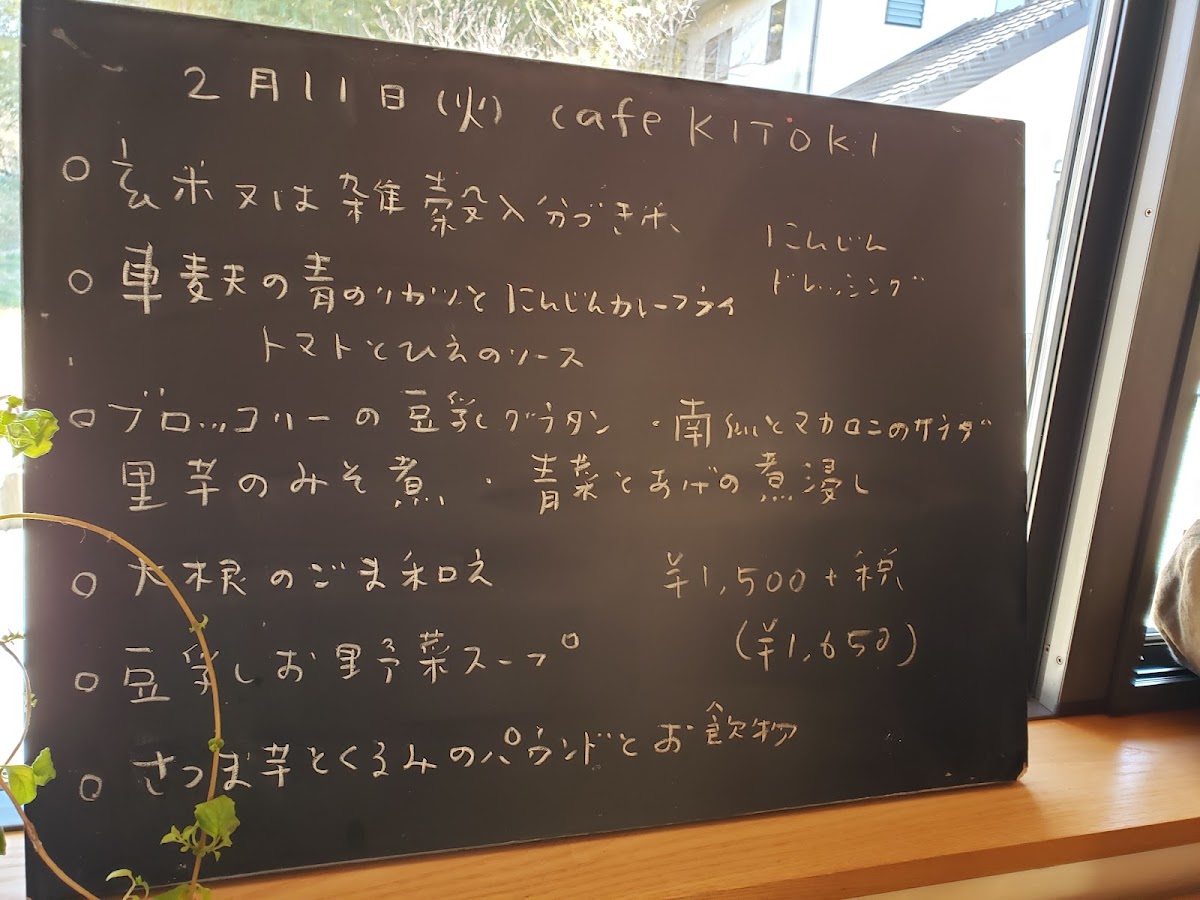 2月11日(火) cafe KITOKI
○ 玄米又は雑穀入分づき米、
にんじん
ドレッシング
○ 車麸の青のりカツとにんじんカレーフライ
トマトとひえのソース
○ ブロッコリーの豆乳グラタン ・南瓜とマカロニのサラダ
里芋のみそ煮 ・ 青菜とあげの煮浸し
○ 大根のごま和え
¥1,500+税
○ 豆乳お野菜スープ
(¥1,650)
○ さつま芋とくるみのパウンドとお飲物